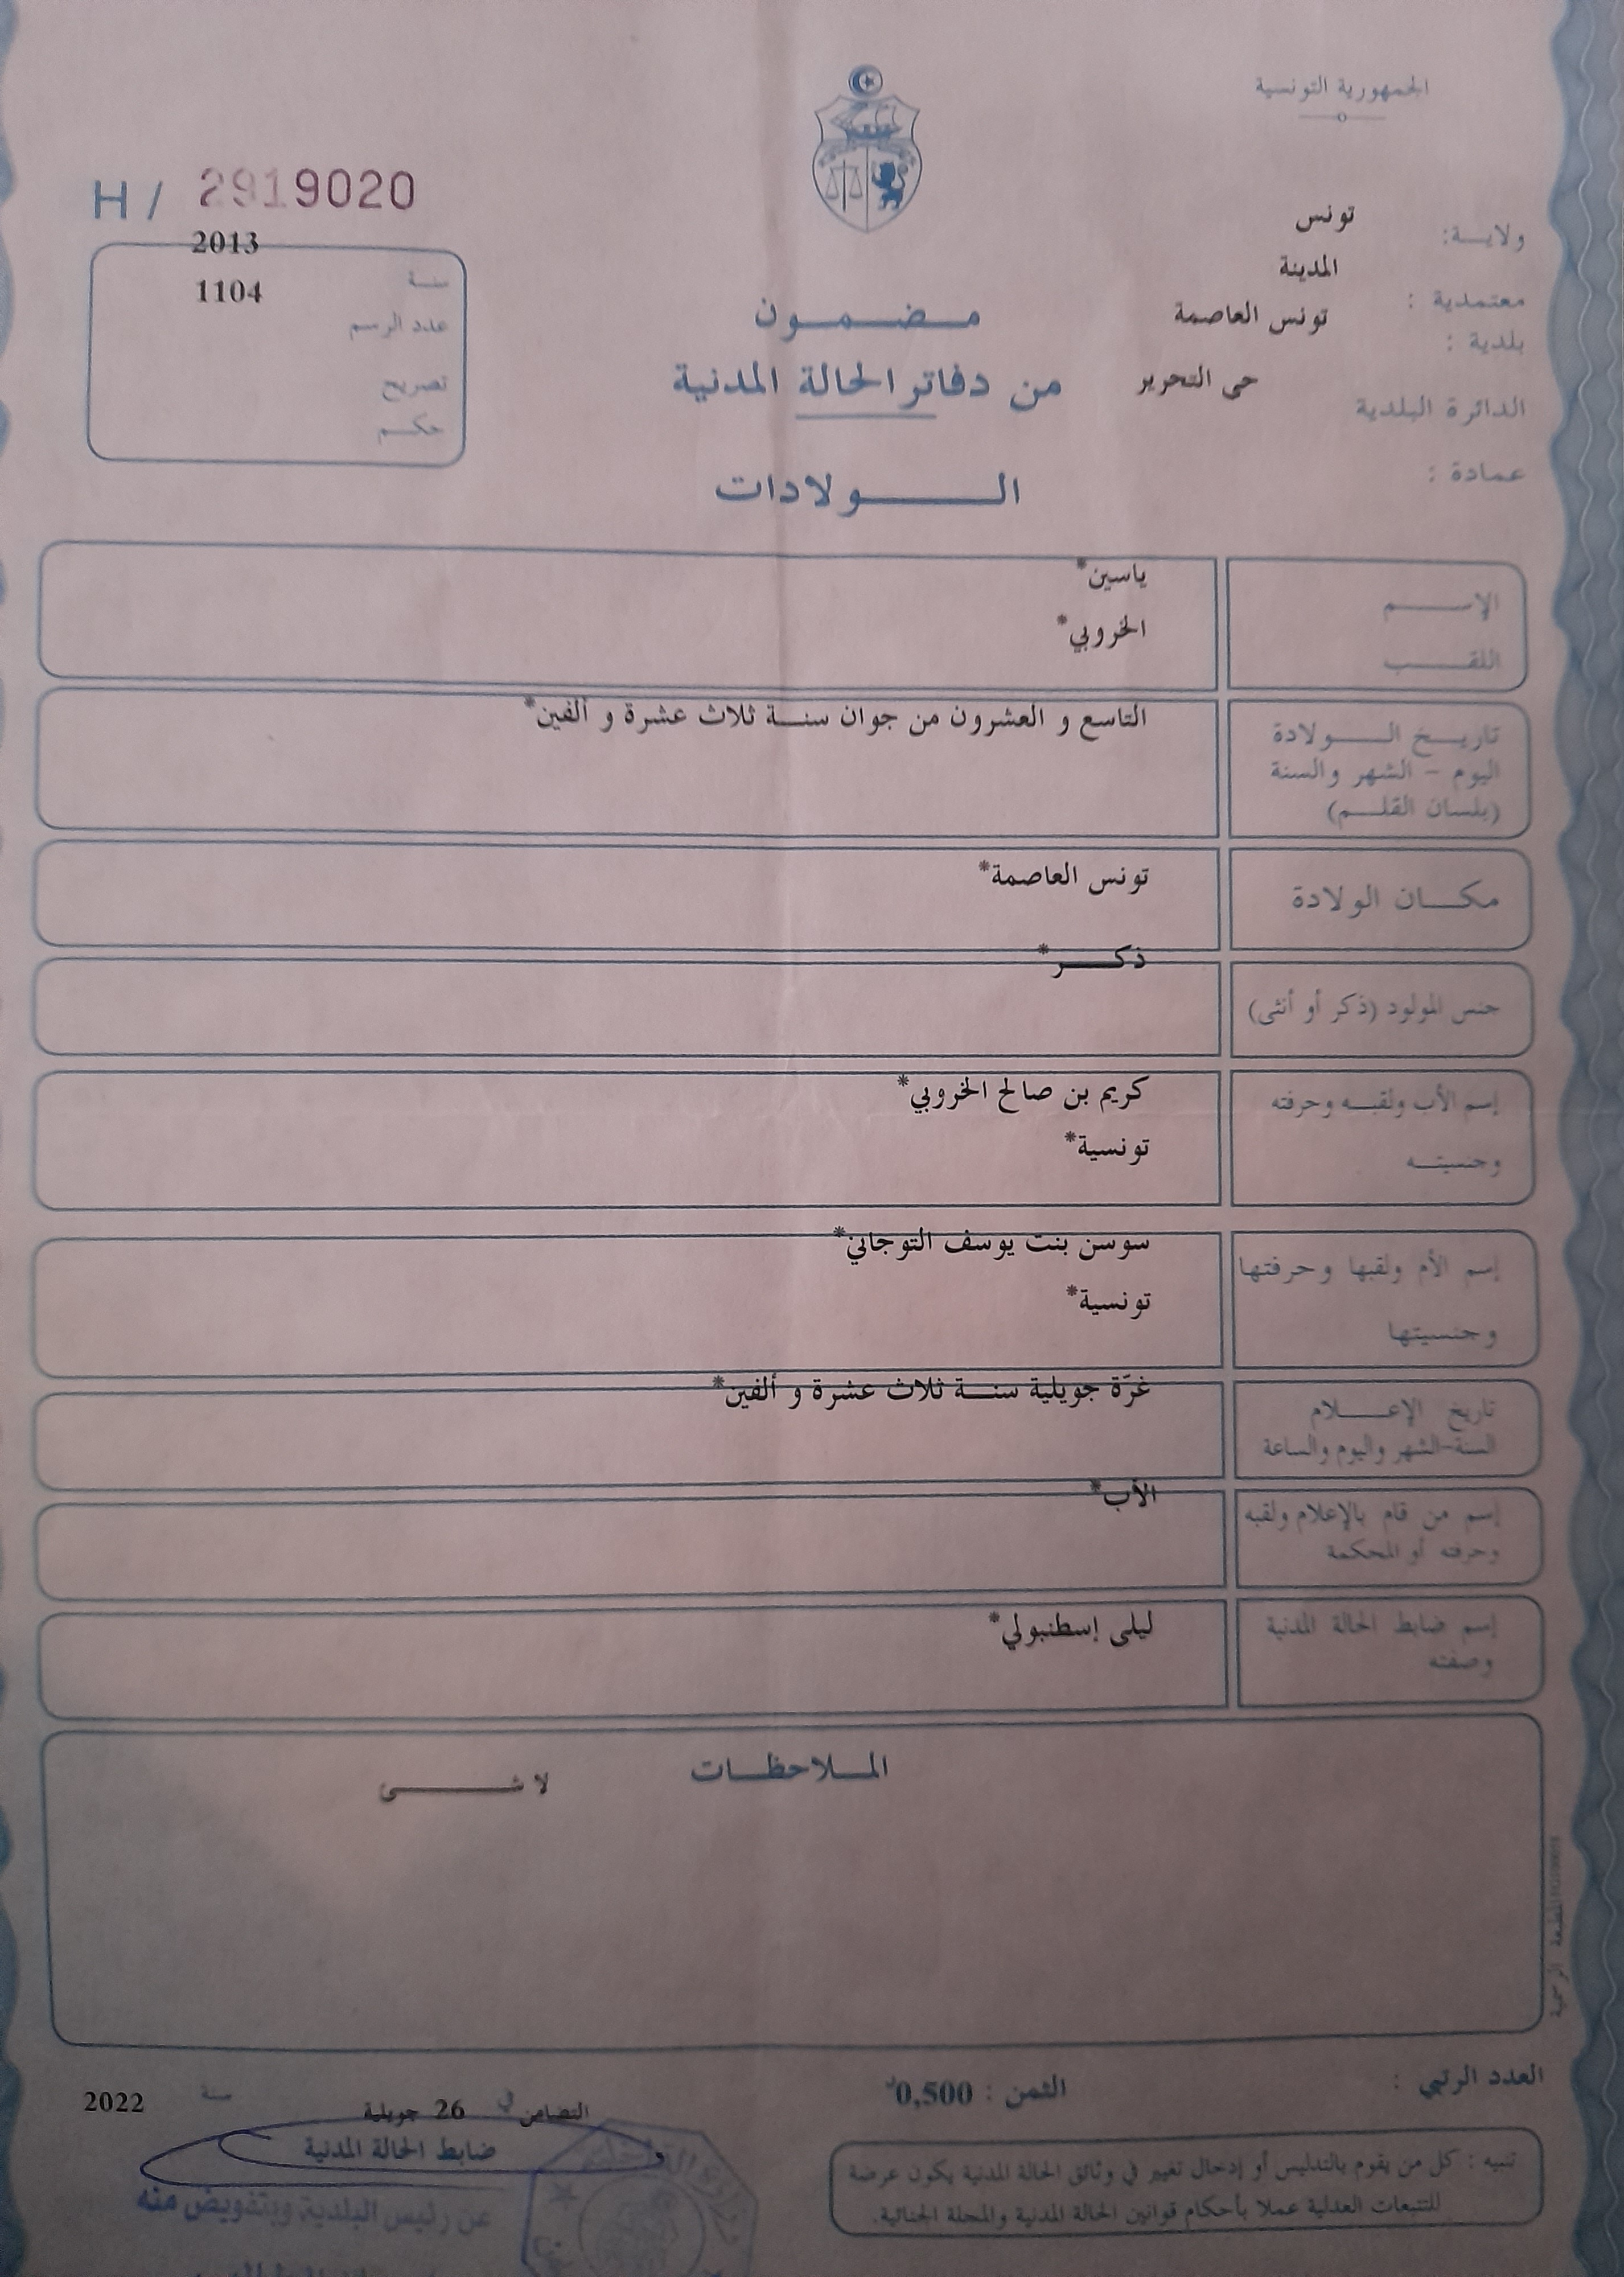 الجمهورية التونسية
H / 2919020
ولاية: تونس
معتمدية : المدينة
بلدية : تونس العاصمة
الدائرة البلدية حي التحرير
عمادة :
سنة 2013
عدد الرسم 1104
تصريح
حكم
مضمون
من دفاتر الحالة المدنية
الولادات
الإسم ياسين*
اللقب الخروبي*
تاريخ الولادة التاسع و العشرون من جوان سنة ثلاث عشرة و ألفين*
اليوم - الشهر والسنة
(بلسان القلم)
مكان الولادة تونس العاصمة*
جنس المولود (ذكر أو أنثى) ذكر*
إسم الأب ولقبه وحرفته كريم بن صالح الخروبي*
وجنسيته تونسية*
إسم الأم ولقبها وحرفتها سوسن بنت يوسف التوجاني*
وجنسيتها تونسية*
تاريخ الإعلام غرّة جويلية سنة ثلاث عشرة و ألفين*
السنة-الشهر واليوم والساعة
إسم من قام بالإعلام ولقبه الأب*
وحرفته أو المحكمة
إسم ضابط الحالة المدنية ليلى إسطنبولي*
وصفته
الملاحظات لا شئ
المطبعة الرسمية
العدد الرتبي :
الثمن : 0,500د
التضامن في 26 جويلية سنة 2022
ضابط الحالة المدنية
عن رئيس البلدية وبتفويض منه
تنبيه : كل من يقوم بالتدليس أو إدخال تغيير في وثائق الحالة المدنية يكون عرضة
للتتبعات العدلية عملا بأحكام قوانين الحالة المدنية والمجلة الجنائية.